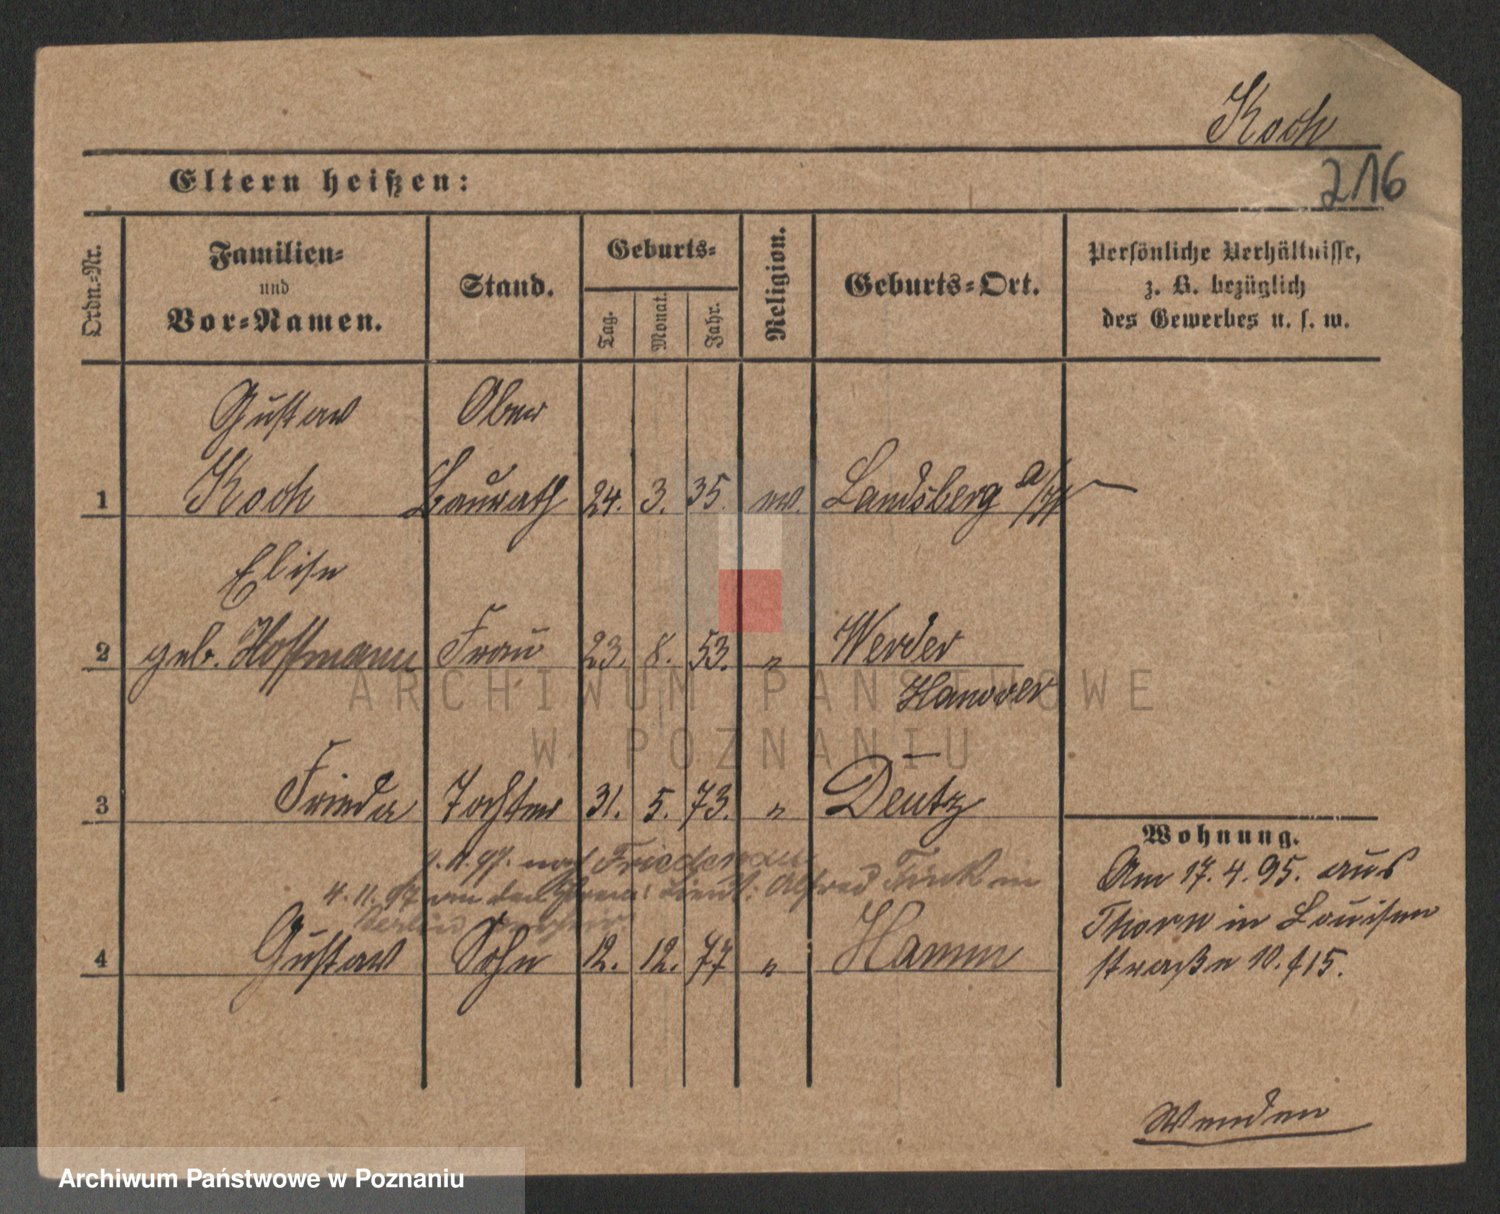 Koch
Eltern heißen:
216
Ordn.-Nr.
Familien-
und
Vor-Namen.
Stand.
Geburts-
Tag.
Monat.
Jahr.
Religion.
Geburts-Ort.
Persönliche Verhältnisse,
z. B. bezüglich
des Gewerbes u. s. w.
Gustav Ober
1 Koch Baurath 24. 3. 35. ev. Landsberg a/W
Elise
2 geb. Hoffmann Frau 23. 8. 53. " Werder
Hanover
ARCHIWUM PAŃSTWOWE
W POZNANIU
3 Frieda Tochter 31. 5. 73. " Deutz
11. 97. nach Friedenau
4. 11. 97 an den Lieut. Alfred Funk in
Berlin
4 Gustav Sohn 12. 12. 77 " Hamm
Wohnung.
Am 17. 4. 95. aus
Thorn in Louisen
straße 10. 415.
Wenden
Archiwum Państwowe w Poznaniu